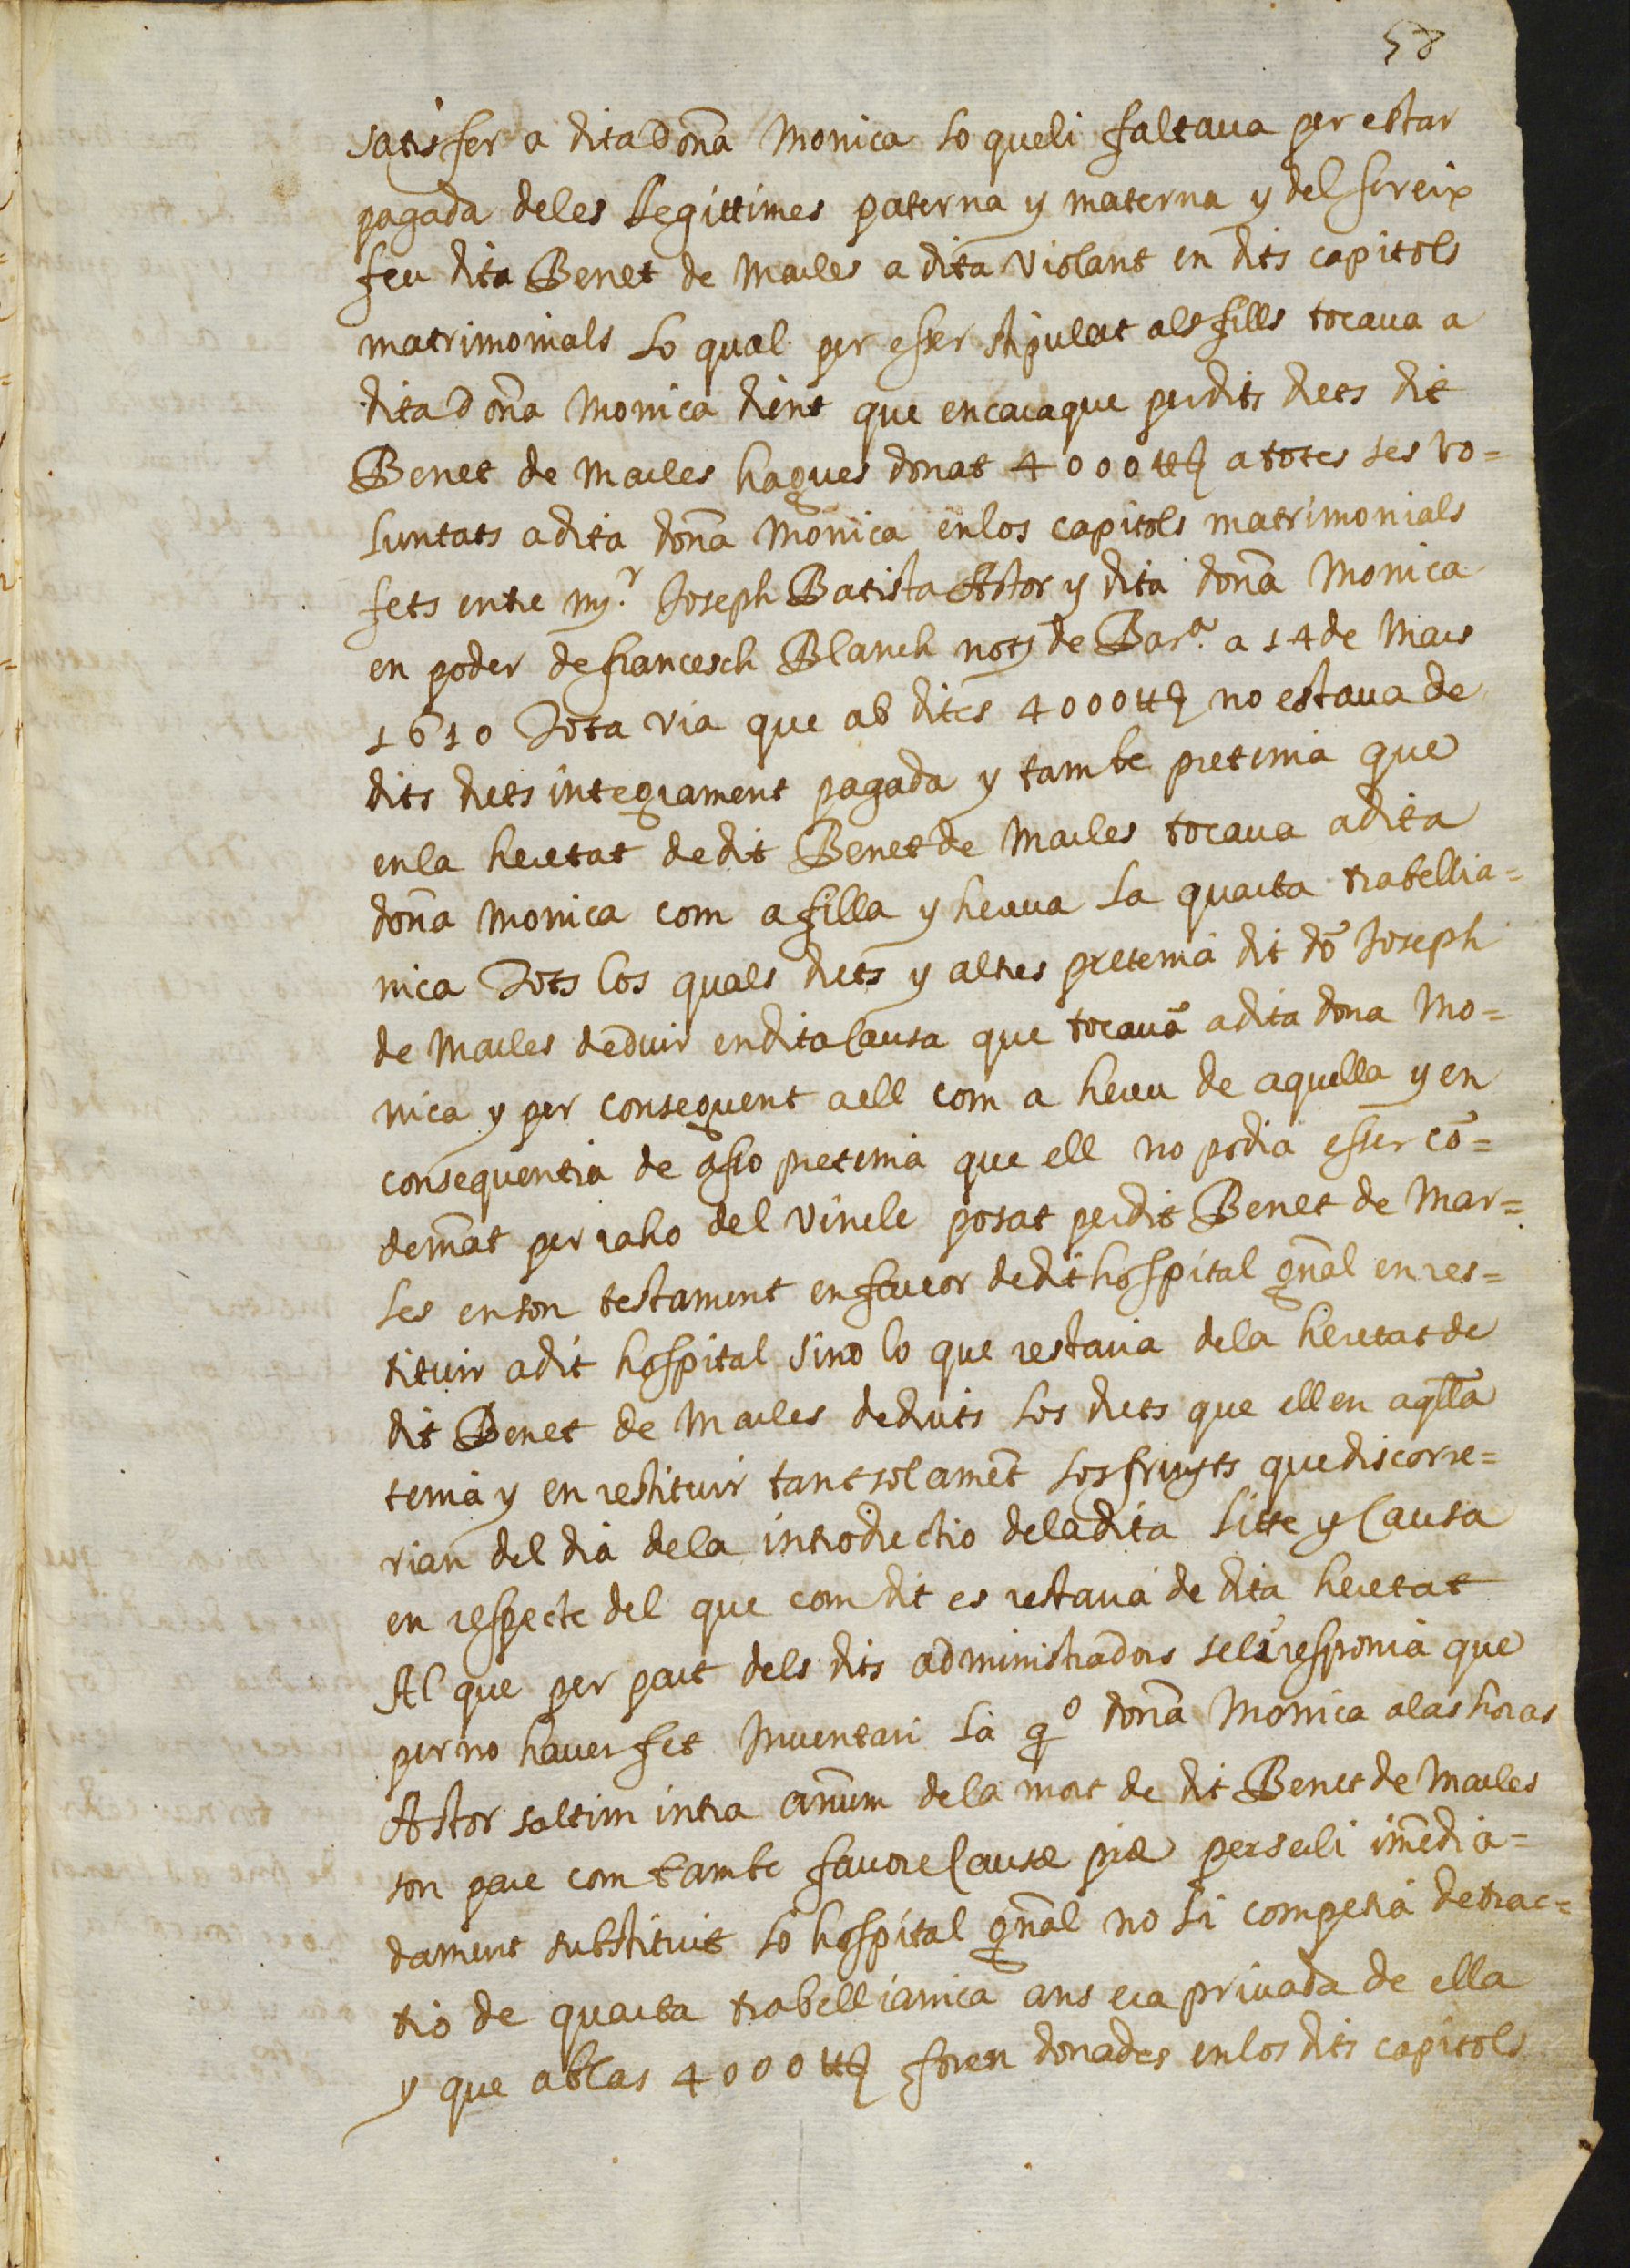 58
satisfer a dita Doña Monica lo queli faltaua per estar
pagada deles legittimes paterna y materna y del screix
feu dita Benet de Marles a dita Violant en dits capitols
matrimonials lo qual per esser stipulat als fills tocaua a
dita Doña Monica dient que encaraque perdits drets dit
Benet de Marles hagues donat 4000 ₶ a totes ses vo=
luntats a dita doña Monica enlos capitols matrimonials
fets entre my.r Joseph Batista Astor y dita doña Monica
en poder de francesch Blanch noty de Bar.a a 14 de Mars
1610 Tota via que ab dites 4000 ₶ no estaua de
dits drets integrament pagada y tambe pretenia que
enla heretat dedit Benet de Marles tocaua adita
doña Monica com a filla y hereua la quarta trabellia=
nica Tots los quals drets y altres pretenia dit dō Joseph
de Marles deduir endita Causa que tocauā adita dona Mo=
nica y per consequent aell com a hereu de aquella y en
consequentia de asso pretenia que ell no podia esser cō=
demnāt per raho del vincle posat perdit Benet de Mar=
les enson testament enfauor dedit hospital gn̄al enres=
tituir adit hospital sino lo que restaria dela heretat de
dit Benet de Marles deduits los drets que ell en aq̄lla
tenia y en restituir tantsolamēt los fruyts que discorre=
rian del dia dela introductio deladita litte y Causa
en respecte del que com dit es restaua de dita heretat
Al que per part dels dits administradors seli responia que
perno hauer fet Inuentari la q.o doña Monica alas horas
Astor saltim intra anūm dela mort de dit Benet de Marles
son pare com tambe fauore Causæ piæ perserli imēdia=
dament substituit lo hospital gn̄al no li competia detrac=
tio de quarta trabellianica ans era priuada de ella
y que ablas 4000 ₶ foren donades enlos dits capitols